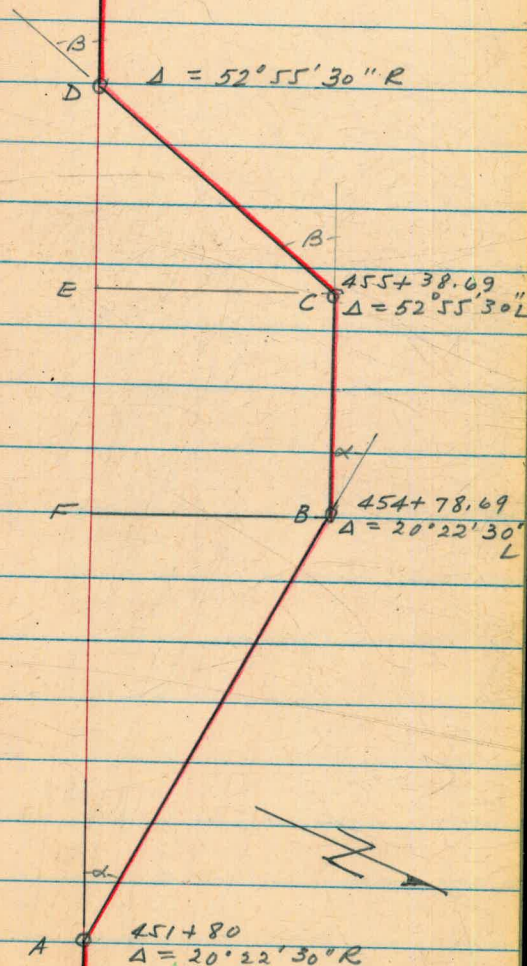 β
D Δ = 52°55'30" R
β
E
455+38.69
C Δ = 52°55'30" L
α
F B 454+78.69
Δ = 20°22'30"
L
α
A 451+80
Δ = 20°22'30" R